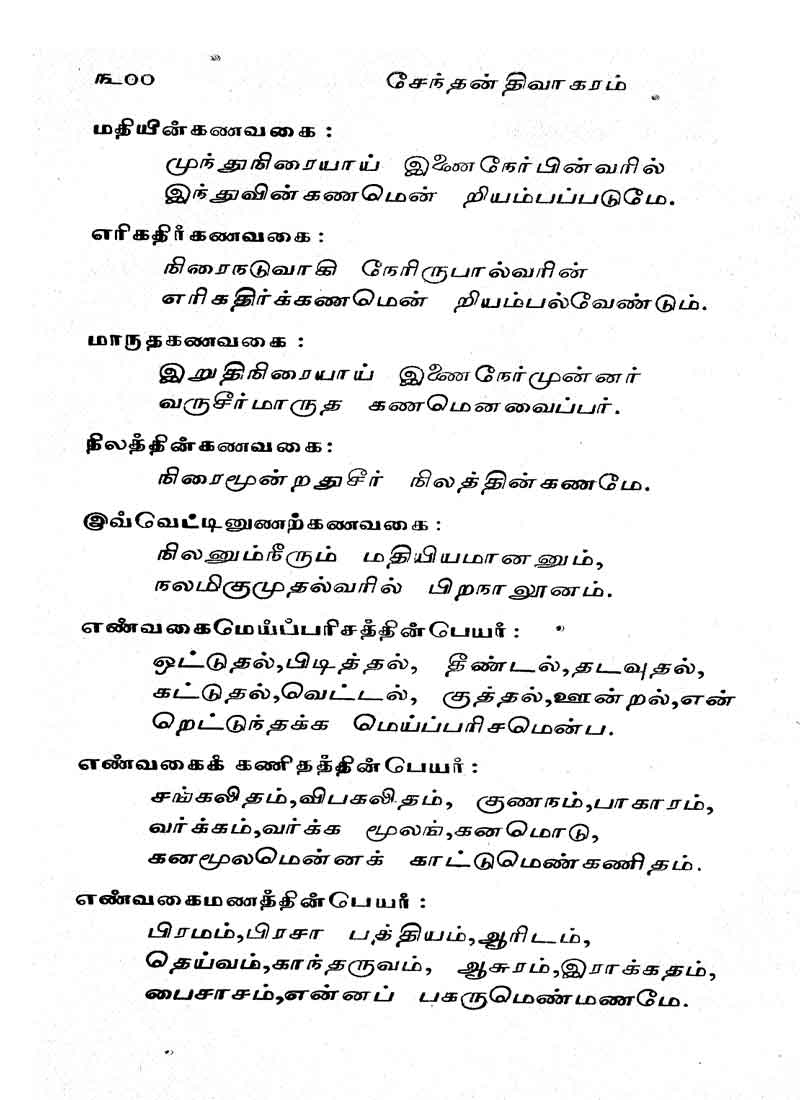 ௩00 சேந்தன் திவாகரம்
மதியின்கணவகை :
முந்துநிரையாய் இணைநேர்பின்வரில்
இந்துவின்கணமென் றியம்பப்படுமே.
எரிகதிர்கணவகை :
நிரைநடுவாகி நேரிருபால்வரின்
எரிகதிர்க்கணமென் றியம்பல்வேண்டும்.
மாருதகணவகை :
இறுதிநிரையாய் இணைநேர்முன்னர்
வருசீர்மாருத கணமெனவைப்பர்.
நிலத்தின்கணவகை:
நிரைமூன்றதுசீர் நிலத்தின்கணமே.
இவ்வெட்டினுணற்கணவகை :
நிலனும்நீரும் மதியியமானனும்,
நலமிகுமுதல்வரில் பிறநாலூனம்.
எண்வகைமெய்ப்பரிசத்தின்பெயர் :
ஒட்டுதல்,பிடித்தல், தீண்டல்,தடவுதல்,
கட்டுதல்,வெட்டல், குத்தல்,ஊன்றல்,என்
றெட்டுந்தக்க மெய்ப்பரிசமென்ப.
எண்வகைக் கணிதத்தின்பெயர் :
சங்கலிதம்,விபகலிதம், குணநம்,பாகாரம்,
வர்க்கம்,வர்க்க மூலங்,கனமொடு,
கனமூலமென்னக் காட்டுமெண்கணிதம்.
எண்வகைமணத்தின்பெயர் :
பிரமம்,பிரசா பத்தியம்,ஆரிடம்,
தெய்வம்,காந்தருவம், ஆசுரம்,இராக்கதம்,
பைசாசம்,என்னப் பகருமெண்மணமே.